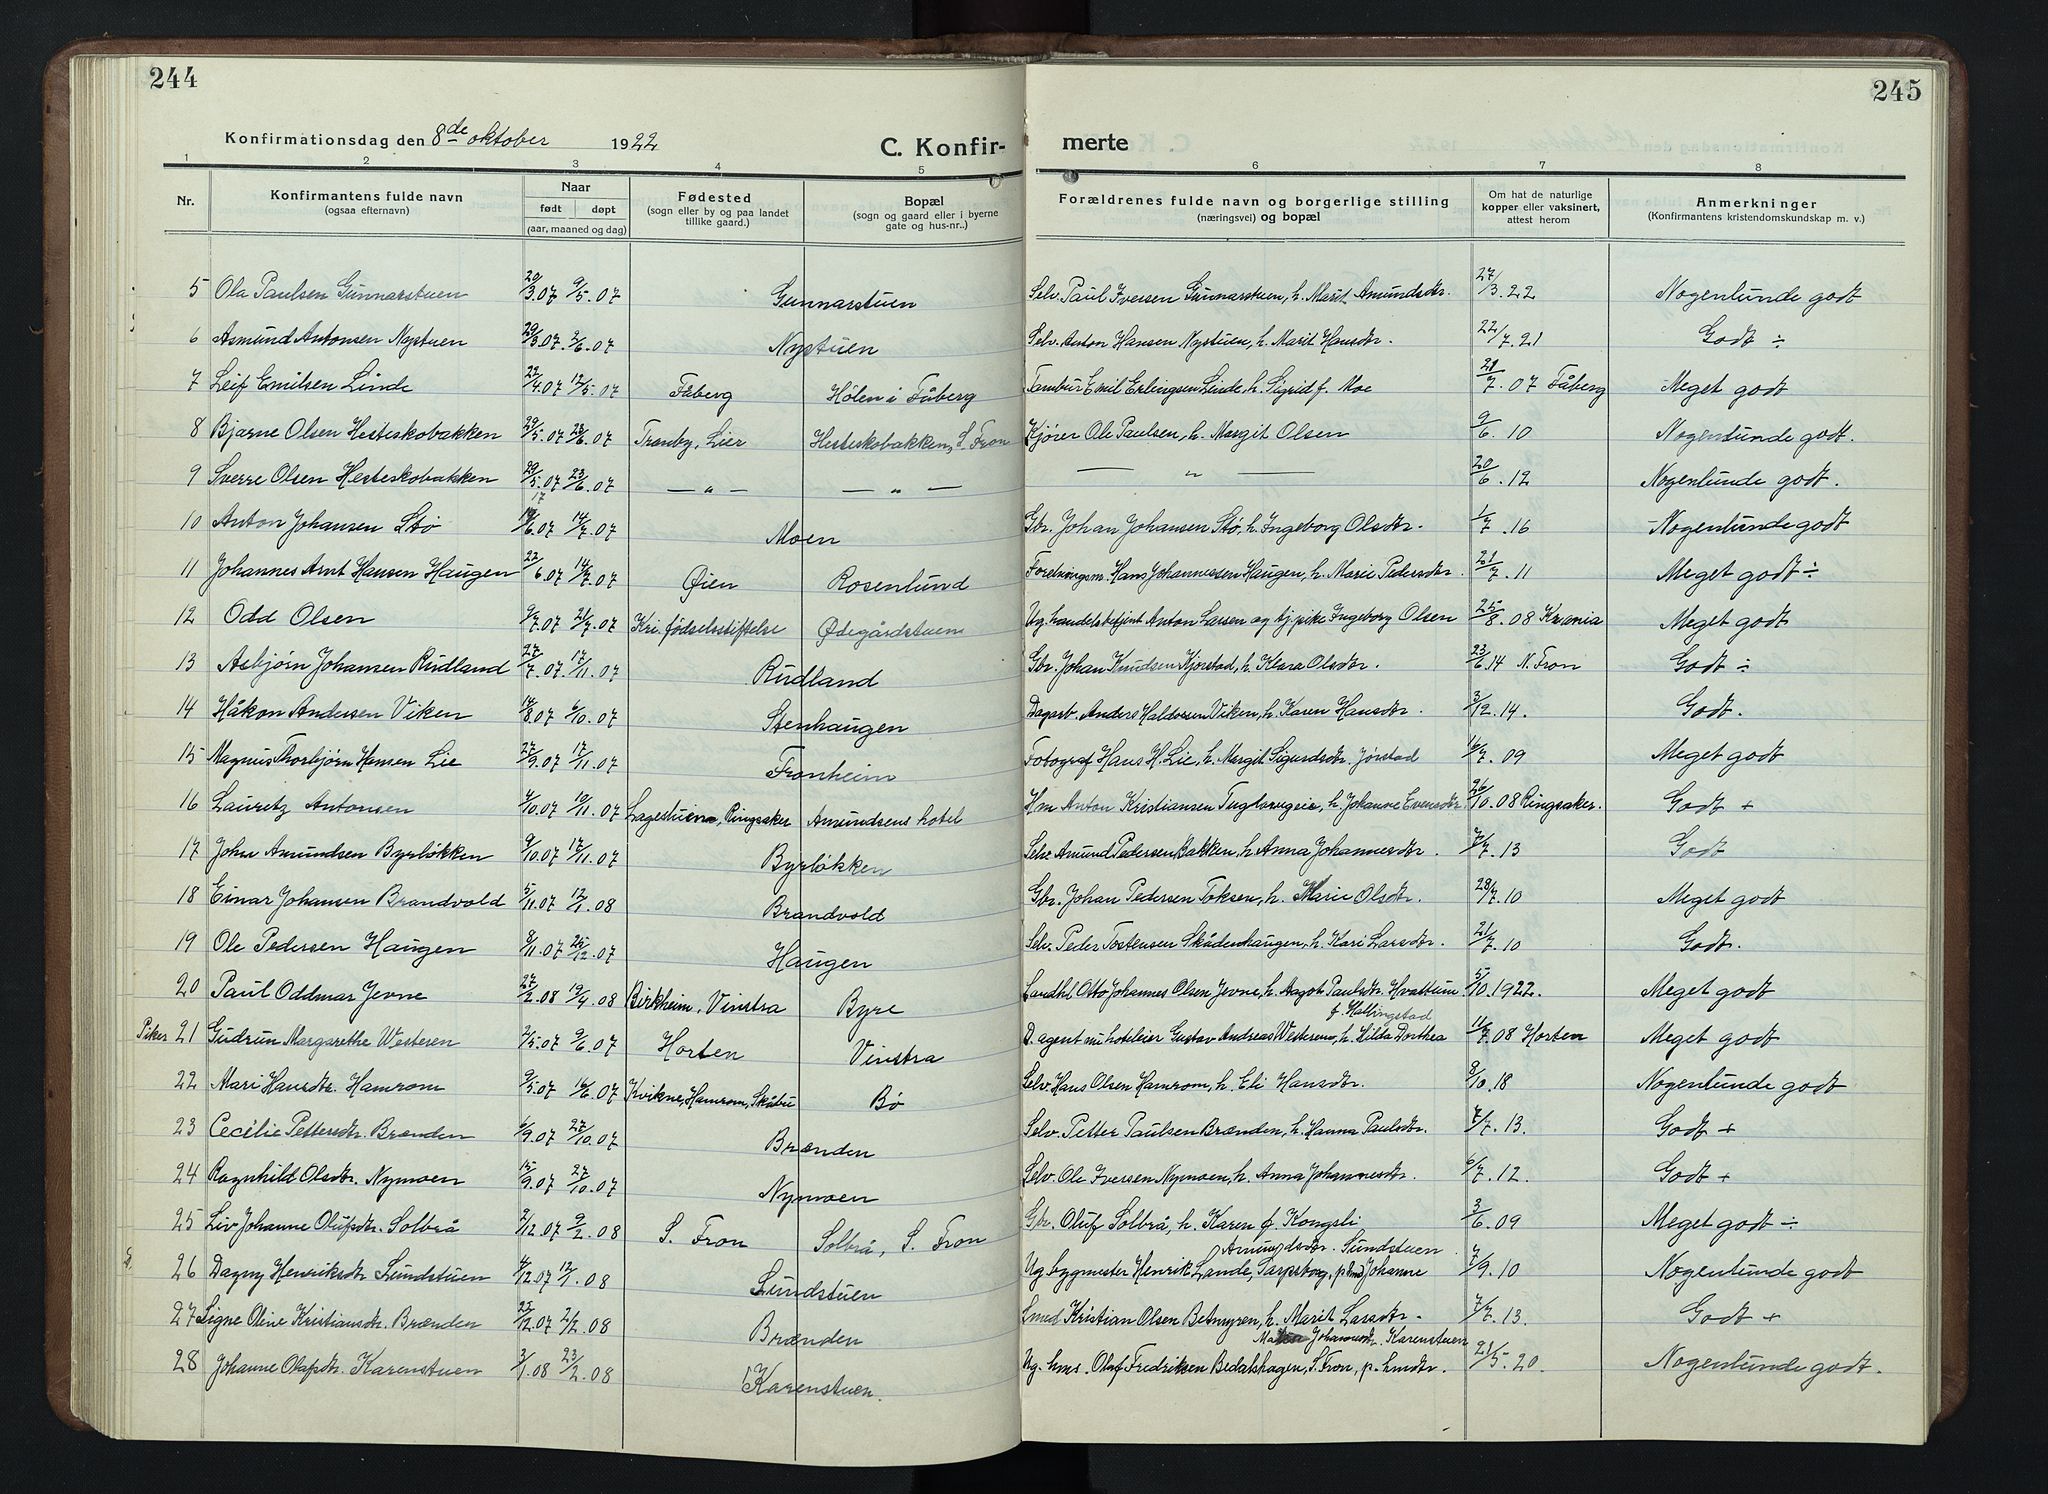 244
Konfirmationsdag den 8de oktober 1922
C. Konfir-
1 2 3 4 5
Nr. Konfirmantens fulde navn (ogsaa efternavn) Naar født døpt (aar, maaned og dag) Fødested (sogn eller by og paa landet tillike gaard.) Bopæl (sogn og gaard eller i byerne gate og hus-nr..)
245
merte
6 7 8
Forældrenes fulde navn og borgerlige stilling (næringsvei) og bopæl Om hat de naturlige kopper eller vaksinert, attest herom Anmerkninger (Konfirmantens kristendomskundskap m. v.)
5 Ola Paulsen Gunnarstuen 20/3.07 9/5.07 Gunnarstuen Selv. Paul Iversen Gunnarstuen, h. Marit Amundsdtr. 27/3.22 Nogenlunde godt
6 Asmund Antonsen Nystuen 29/3.07 2/6.07 Nystuen Selv. Anton Hansen Nystuen, h. Marit Hansdtr. 22/7.21 Godt ÷
7 Leif Emilsen Linde 22/4.07 12/5.07 Fåberg Hølen i Fåberg Tambur Emil Erlingsen Linde, h. Sigrid f. Moe 21/7.07 Fåberg Meget godt
8 Bjarne Olsen Hesteskobakken 29/5.07 23/6.07 Tranby, Lier Hesteskobakken, S. Fron Kjører Ole Paulsen, h. Margit Olsen 9/6.10 Nogenlunde godt.
9 Sverre Olsen Hesteskobakken 29/5.07 23/6.07 — „ — — „ — — „ — 20/6.12 Nogenlunde godt.
10 Anton Johansen Stø 17/6.07 14/7.07 Moen Gbr. Johan Johansen Stø, h. Ingeborg Olsdtr. 1/7.16 Nogenlunde godt
11 Johannes Arnt Hansen Haugen 22/6.07 14/7.07 Øien Rosenlund Foretningsm. Hans Johannessen Haugen, h. Marie Pedersdtr. 21/7.11 Meget godt ÷
12 Odd Olsen 9/7.07 21/7.07 Kri. fødselsstiftelse Ødegårdstuen Ug. handelsbetjent Anton Larsen og tj. pike Ingeborg Olsen 25/8.08 Kr.ania Meget godt
13 Asbjørn Johansen Rudland 27/7.07 17/11.07 Rudland Gbr. Johan Knudsen Kjorstad, h. Klara Olsdtr. 23/6.14 N. Fron Godt ÷
14 Håkon Andersen Viken 14/8.07 6/10.07 Stenhaugen Dagarb. Anders Haldorsen Viken, h. Karen Hansdtr. 3/12.14. Godt.
15 Magnus Thorbjørn Hansen Lie 27/9.07 17/11.07 Fronheim Fotograf Hans H. Lie, h. Margit Sigurdsdtr. Jørstad 16/7.09 Meget godt
16 Lauretz Antonsen 4/10.07 10/11.07 Lagestuen, Ringsaker Amundsens hotel Hm Anton Kristiansen h. Johanne Evensdtr 26/10.08 Ringsaker. Godt +
17 John Amundsen Byrløkken 9/10.07 17/11.07 Byrløkken Selv. Amund Pedersen Bakken, h. Anna Johannesdtr. 7/7.13 Godt
18 Einar Johansen Brandvold 5/11.07 12/1.08 Brandvold Gbr. Johan Pedersen Toksen, h. Marie Olsdtr. 28/7.10 Meget godt
19 Ole Pedersen Haugen 8/11.07 25/12.07 Haugen Selv. Peder Tostensen Skådenhaugen, h. Kari Larsdtr. 21/7.10 Godt.
20 Paul Oddmar Jevne 27/2.08 19/4.08 Birkheim, Vinstra Byre Landhl Otto Johannes Olsen Jevne, h. Aagot Paulsdtr. Hvattum 5/10.1922. Meget godt
f. Hallingstad
Piker 21 Gudrun Margarethe Westeren 2/5.07 9/6.07 Horten Vinstra D. agent nu hoteleier Gustav Andreas Westeren, h. Hilda Dorthea 11/7 08 Horten Meget godt
22 Mari Hansdtr. Hamrom 9/5.07 16/6.07 Kvikne, Hamrom, Skåbu Bø Selv. Hans Olsen Hamrom, h. Eli Hansdtr. 8/10.18 Nogenlunde godt
23 Cecilie Pettersdtr. Brænden 6/9.07 27/10.07 Brænden Selv. Petter Paulsen Brænden, h. Hanna Paulsdtr. 7/7.13. Godt +
24 Ragnhild Olsdtr. Nymoen 15/9.07 27/10.07 Nymoen Selv. Ole Iversen Nymoen, h. Anna Johannesdtr. 6/7.12. Godt +
25 Liv Johanne Olufsdtr. Solbrå 2/12.07 9/2.08 S. Fron Solbrå, S. Fron Gbr. Oluf Solbrå, h. Karen f. Kongsli 3/6.09 Meget godt ÷
Amundsdtr. Sundstuen.
26 Dagny Henriksdtr Sundstuen 4/12.07 12/1.08 Sundstuen Ug. bygmester Henrik Lande, Sarpsborg, p. Johanne 7/9.10 Nogenlunde godt
27 Signe Oline Kristiansdtr. Brænden 23/12.07 2/2.08 Brænden Smed Kristian Olsen Betmyren, h. Marit Larsdtr. 7/7.13. Godt +
Johannesdtr. Karenstuen
28 Johanne Olafsdtr. Karenstuen 3/1.08 23/2.08 Karenstuen. Ug. hms. Olaf Fredriksen Bedalshagen, S. Fron, p. Lmdtr. 21/5.20. Nogenlunde godt.